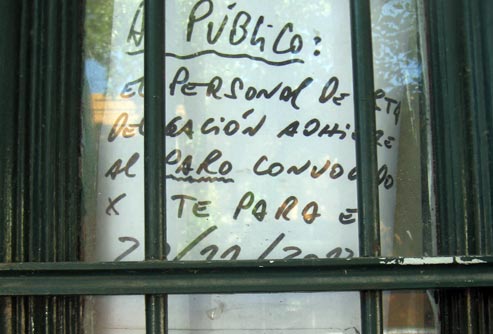 A PÚBLICO:
EL PERSONAL DE
DELEGACIÓN ADHIERE
AL PARO CONVOCADO
X TE PARA E